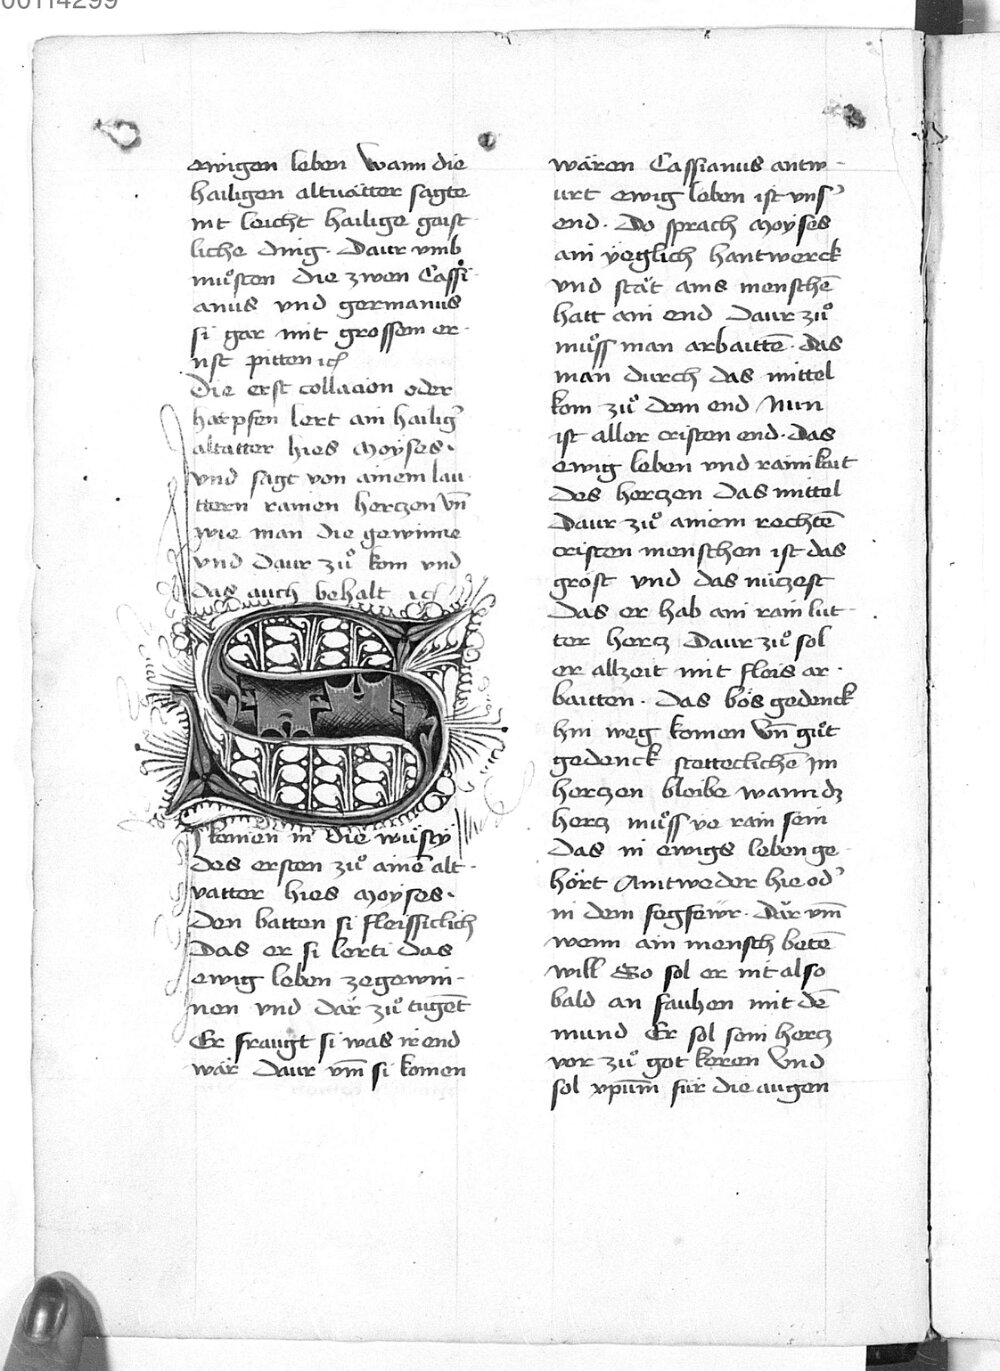 00114299
ewigen leben Wann die
hailigen altuätter sagte
nit leicht hailige gaist
liche ding · Daur vmb
muͦsten die zwen Cassi-
anus vnd germanus
si gar mit grossem er-
nst pitten ic̃
Die erst collacion oder
harpfen lert ain hailigˀ
altatter hies Moyses ·
vnd sagt von ainem lau
ttern rainen herczen vn̄
wie man die gewinne
vnd daur zuͦ kom vnd
das auch behalt ic̃
S
I komen in die wuͤsty
des ersten zuͦ aine͂ alt-
vatter hies Moyses ·
Den batten si fleissiclich
Das er si lerti das
ewig leben zegewin-
nen vnd där zuͦ tuge͂t
Er fraugt si was ir end
wär Daur vm̄ si komen
wären Cassianus antw-
urt ewig leben ist vnsˀ
end · Do sprach Moyses
ain yeglich hantwerck
vnd stät ains mensche͂
hatt ain end Daur zuͦ
muͦss man arbaitte͂ · das
man durch das mittel
kom zuͦ dem end Nun
ist aller cristen end · das
ewig leben vnd rainikait
des herczen Das mittel
Daur zuͦ ainem rechte͂
cristen menschen ist das
gröst vnd das nüczest
Das er hab ain rain lut-
ter hercz Daur zuͦ sol
er allzeit mit fleis ar-
baitten · Das bös gedenck
hin weg komen vn̄ guͦt
gedenck stetteclichē Im
herczen bleibe wann dz
hercz muͦss ye rain sein
Das in ewigs leben ge
hört Aintweder hie odˀ
in dem fegfewr · Där vm̄
wenn ain mensch bete͂
will So sol er nit also
bald an fauhen mit de͂
mund Er sol sein hercz
vor zuͦ got keren Vnd
sol xpūm für die augen